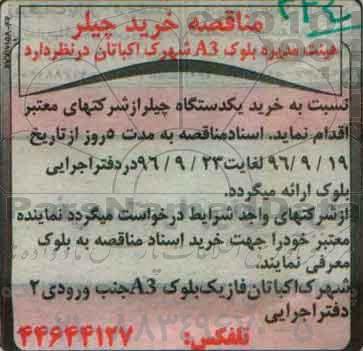 مناقصه خرید چیلر
هیئت مدیره بلوک A3 شهرک اکباتان درنظردارد
نسبت به خرید یکدستگاه چیلرازشرکتهای معتبر
اقدام نماید. اسنادمناقصه به مدت ۵روز ازتاریخ
۹۶/ ۹ / ۱۹ لغایت۲۳ / ۹ / ۹۶دردفتراجرایی
بلوک ارائه میگردد.
ازشرکتهای واجد شرایط درخواست میگردد نماینده
معتبر خودرا جهت خرید اسناد مناقصه به بلوک
معرفی نمایند.
شهرک‌اکباتان‌فازیک‌بلوک A3جنب ورودی ۲
دفتراجرایی
تلفکس: ۴۴۶۴۴۱۲۷